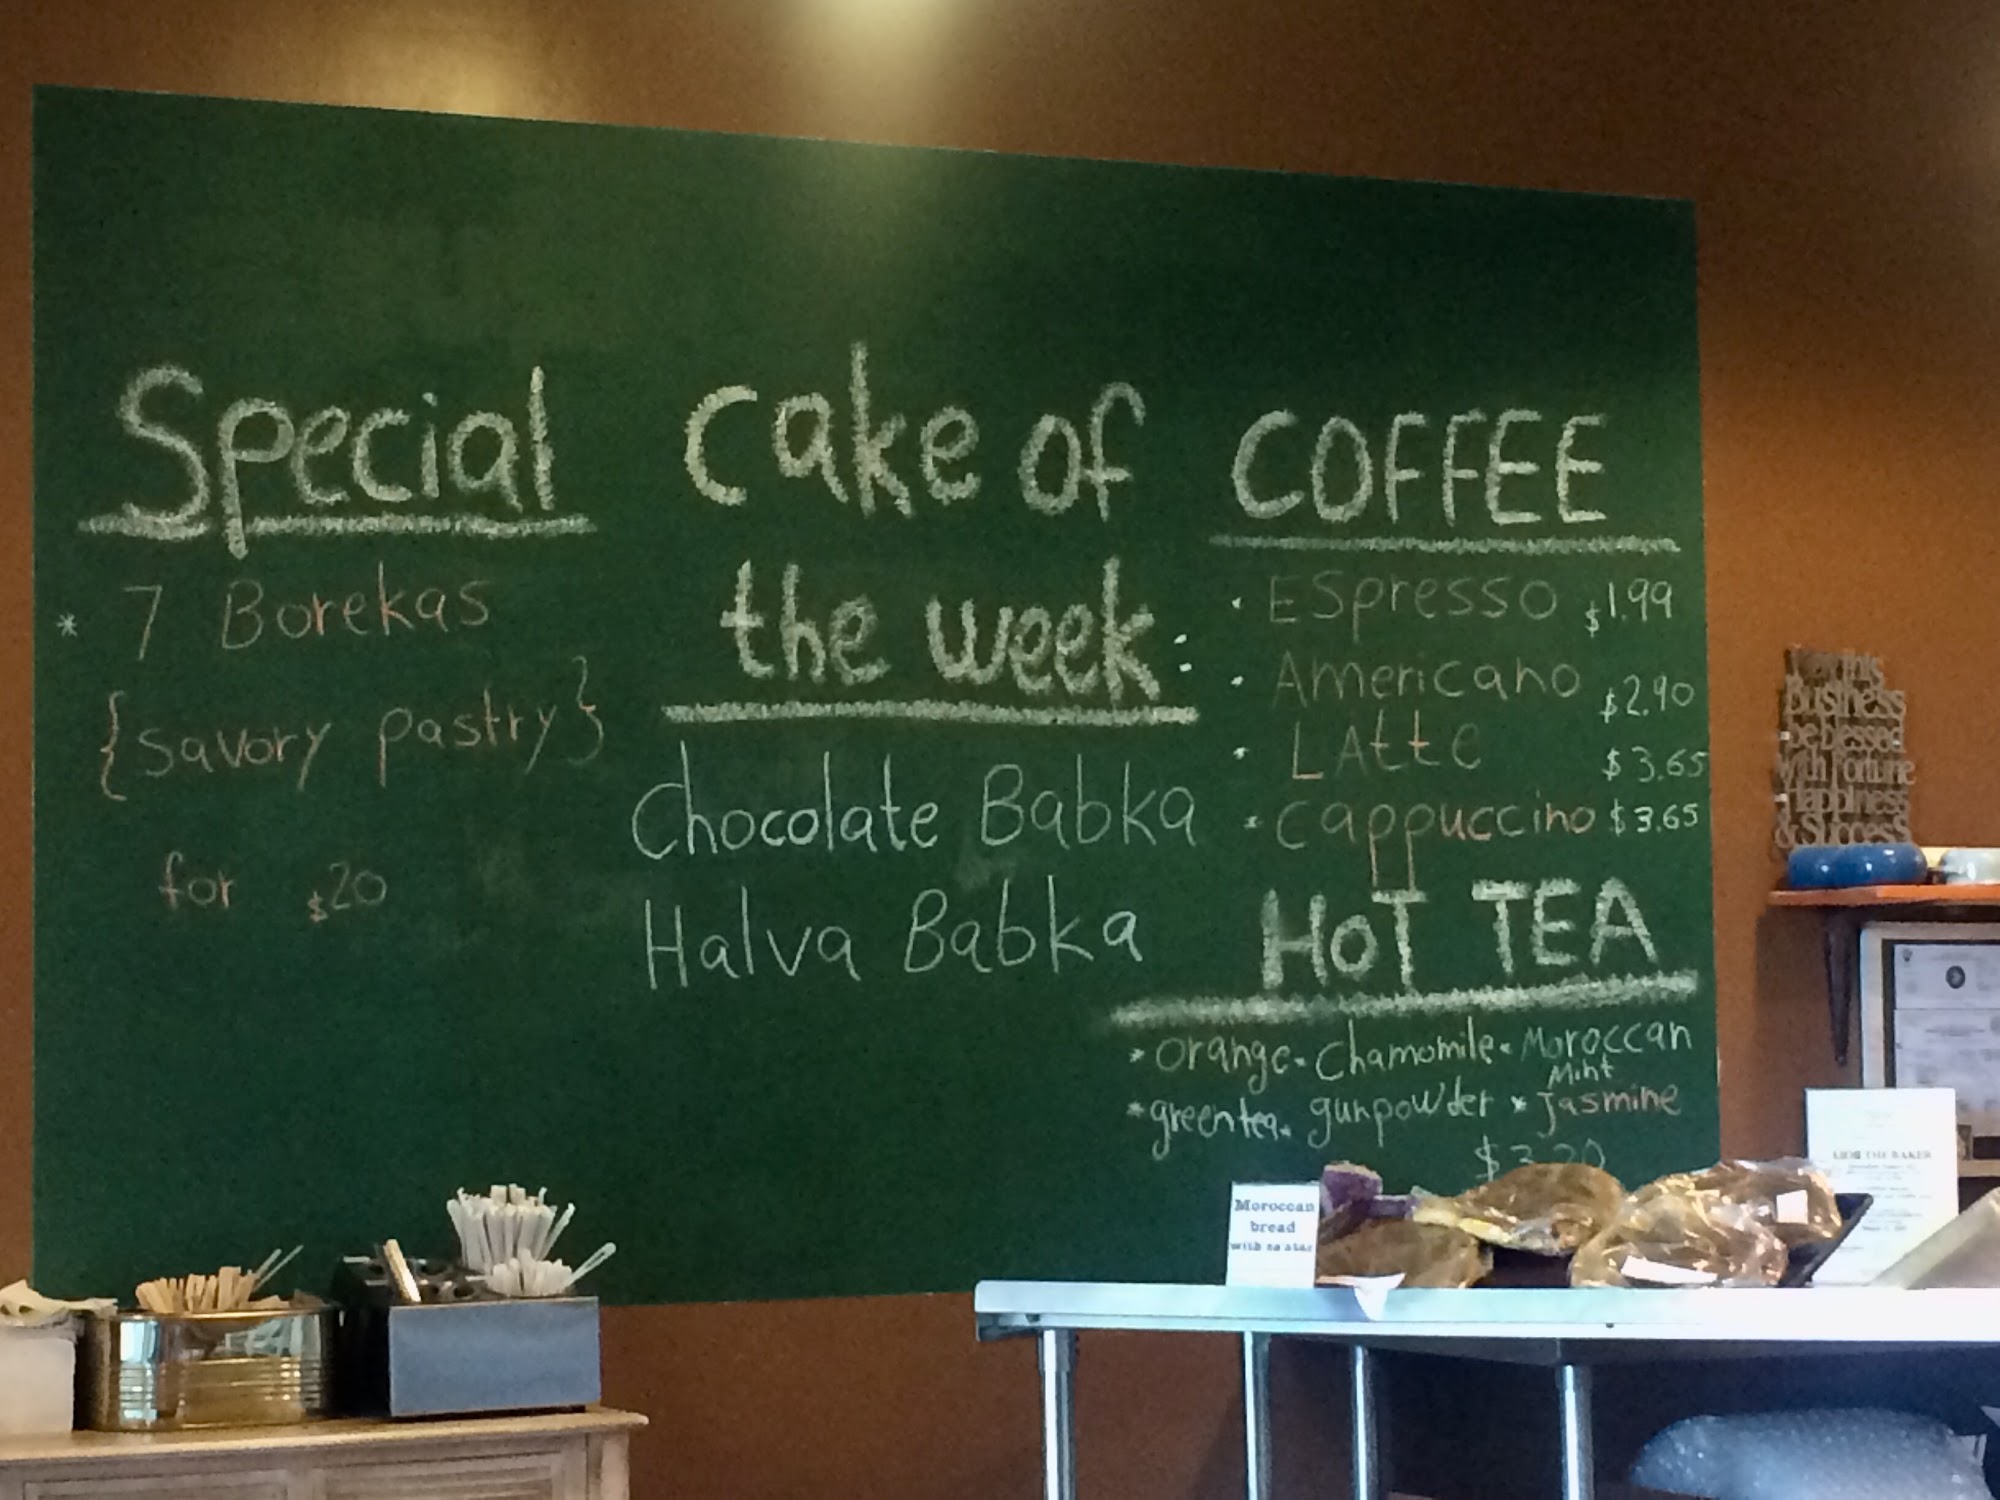 Special
* 7 Borekas
{savory pastry}
for $20
Cake of
the week:
Chocolate Babka
Halva Babka
COFFEE
• Espresso $1.99
• Americano $2.90
• LAtte $3.65
• Cappuccino $3.65
HoT TEA
* orange • Chamomile • Moroccan
Mint
* green tea • gunpowder * Jasmine
$3.20
Moroccan
bread
Business
be blessed
with Fortune
Happiness
& Success
THE BAKER